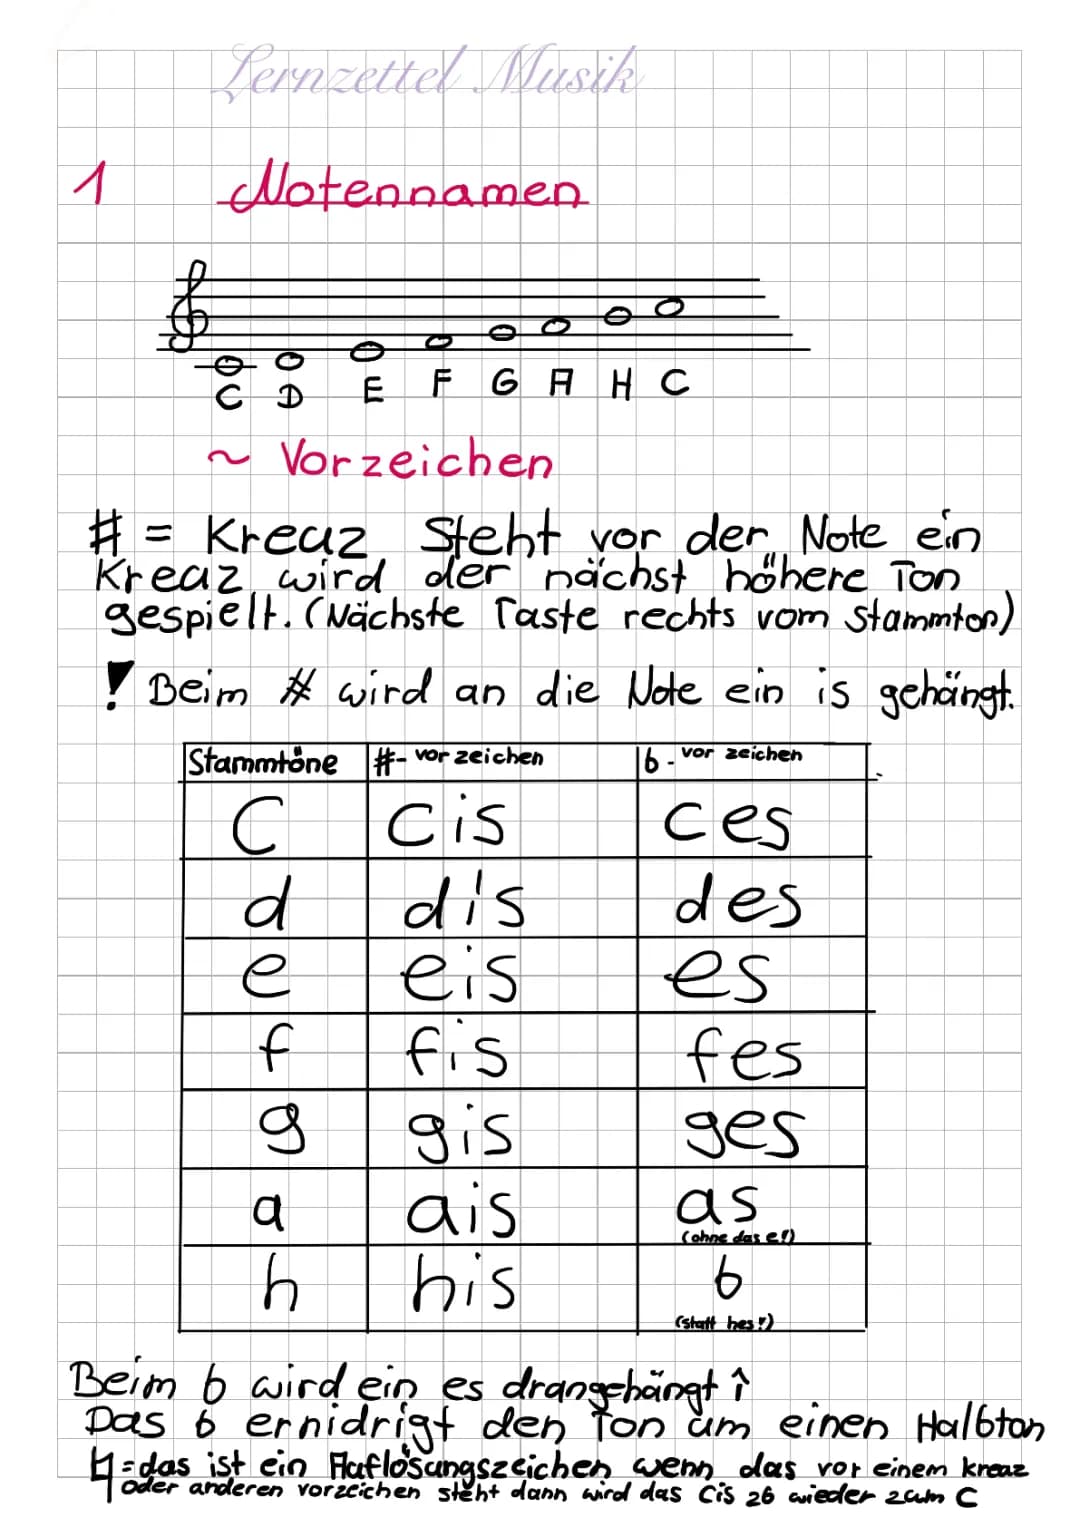 Lernzettel Musik
1 Notennamen
C D E F G A H C
~ Vorzeichen
# = Kreuz Steht vor der Note ein
Kreuz wird der nächst höhere Ton
gespielt. (Nächste Taste rechts vom Stammton)
! Beim # wird an die Note ein is gehängt.
Stammtöne #-vorzeichen b-vorzeichen
C cis ces
d dis des
e eis es
f fis fes
g gis ges
a ais as
(ohne das e!)
h his b
(statt hes!)
Beim b wird ein es drangehängt ↑
Das b ernidrigt den Ton um einen Halbton
♮ = das ist ein Auflösungszeichen wenn das vor einem kreuz
oder anderen vorzeichen steht dann wird das Cis zb wieder zum C